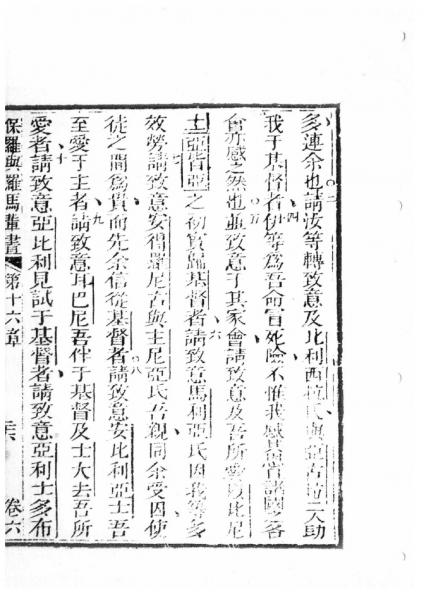 多連余也請汝等轉致意及比利西拉氏與亞古拉二人助
我于基督者伊等為吾命冒死險不惟我感尚諸國之各
會亦感之然也並致意于其家會請致意及吾所愛比尼
士亞皆亞之初實歸基督者請致意馬利亞氏因我等多
效勞請致意安得羅尼古與主尼亞氏吾親同余受囚使
徒之間為貴而先余信從基督者請致意安比利亞士吾
至愛于主者請致意耳巴尼吾伴于基督及士大去吾所
愛者請致意亞比利見試于基督者請致意亞利士多布
保羅與羅馬輩書 第十六章 卷六